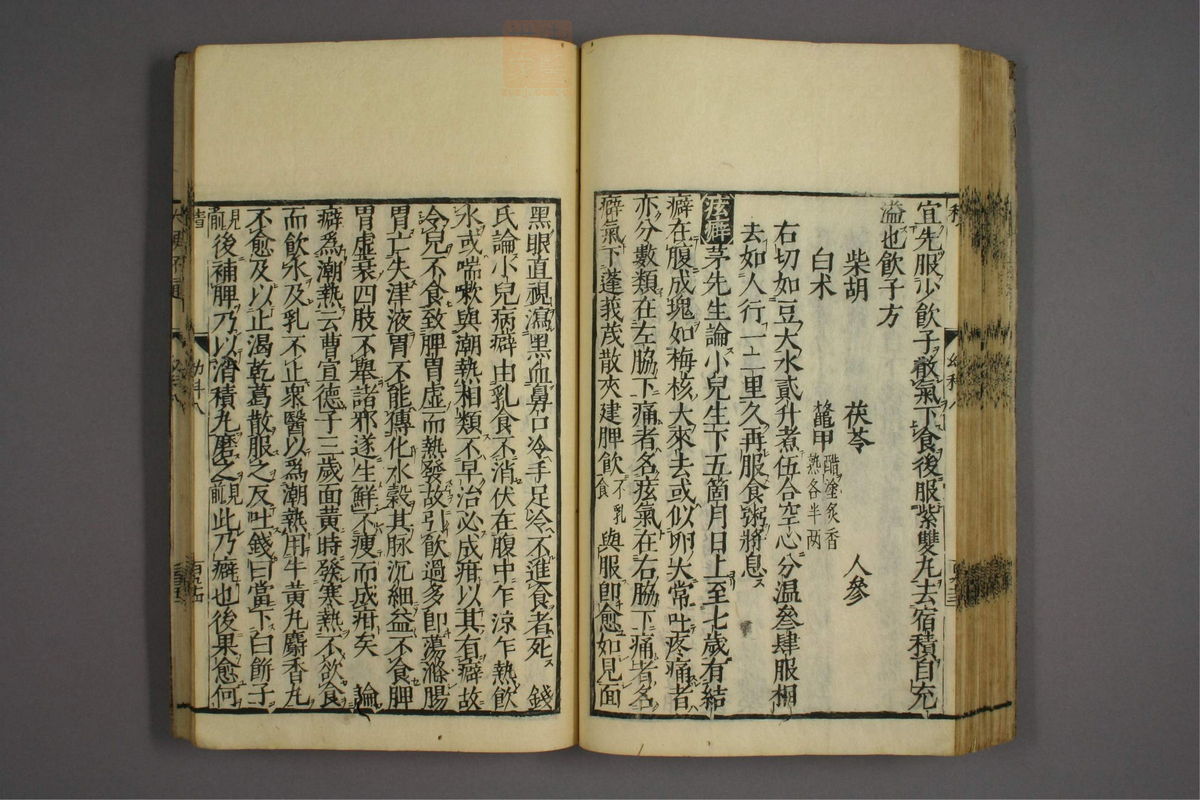 宜先服少飲子散氣下食後服紫雙丸去宿積自充
溢也飲子方
柴胡 茯苓 人參
白朮 鼈甲醋塗炙香熟各半两
右切如豆大水貳升煮伍合空心分温叄肆服相
去如人行一二里久再服食粥將息
痃癖 茅先生論小兒生下五箇月日上至七歲有結
癖在腹成塊如梅核大來去或似卵大常吐疼痛者
亦分數類在左脇下痛者名痃氣在右脇下痛者名
癖氣下蓬莪茂散夾建脾飲不乳食與服即愈如見面
黑眼直視瀉黑血鼻口冷手足冷不進食者死 錢
氏論小兒病癖由乳食不消伏在腹中乍涼乍熱飲
水或喘嗽與潮熱相類不早治必成疳以其有癖故
冷兒不食致脾胃虚而熱發故引飲過多即蕩滌腸
胃亡失津液胃不能傳化水穀其脉沉細益不食脾
胃虚衰四肢不舉諸邪遂生鮮不瘦而成疳矣 論
癖爲潮熱云曹宣德子三歲面黄時發寒熱不欲食
而飲水及乳不止衆醫以爲潮熱用牛黄丸麝香丸
不愈及以止渴乾葛散服之反吐錢曰當下白餅子
見前後補脾乃以消積丸磨之見前此乃癖也後果愈何